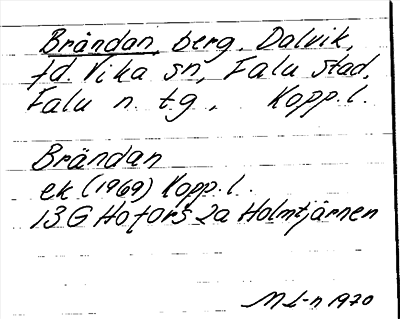 Brändan, berg. Dalvik,
fd. Vika sn, Falu stad,
Falu n. tg. Kopp. l.
Brändan
ek (1969) Kopp. l.
13G Hofors 2a Holmtjärnen
M L-n 1970